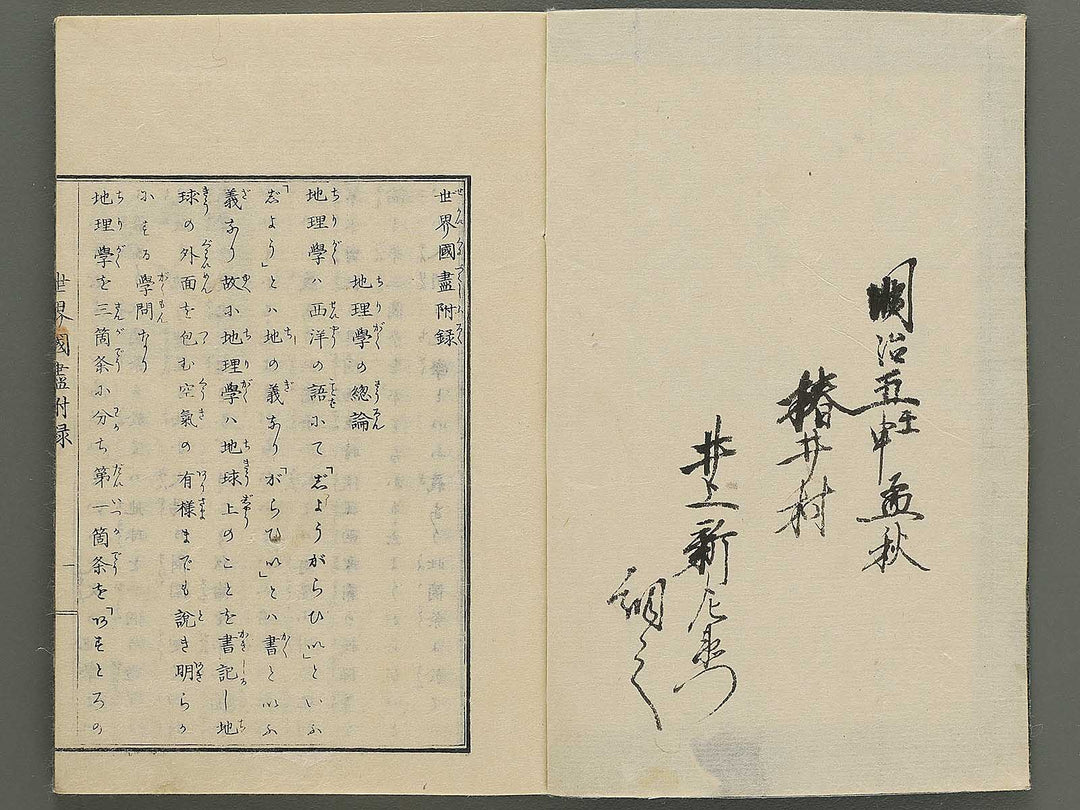 明治五壬申孟秋
椿井村
井上新左衛門
調之
世界國盡附録
地理學の總論
地理學ハ西洋の語にて「志ようがらひい」といふ
「志よう」とハ地の義なり「がらひい」とハ書といふ
義なり故に地理學ハ地球上のことを書記し地
球の外面を包む空氣の有様までも説き明らか
にする學問なり
地理學を三箇条に分ち第一箇条を「あすとろの
世界國盡付録
一